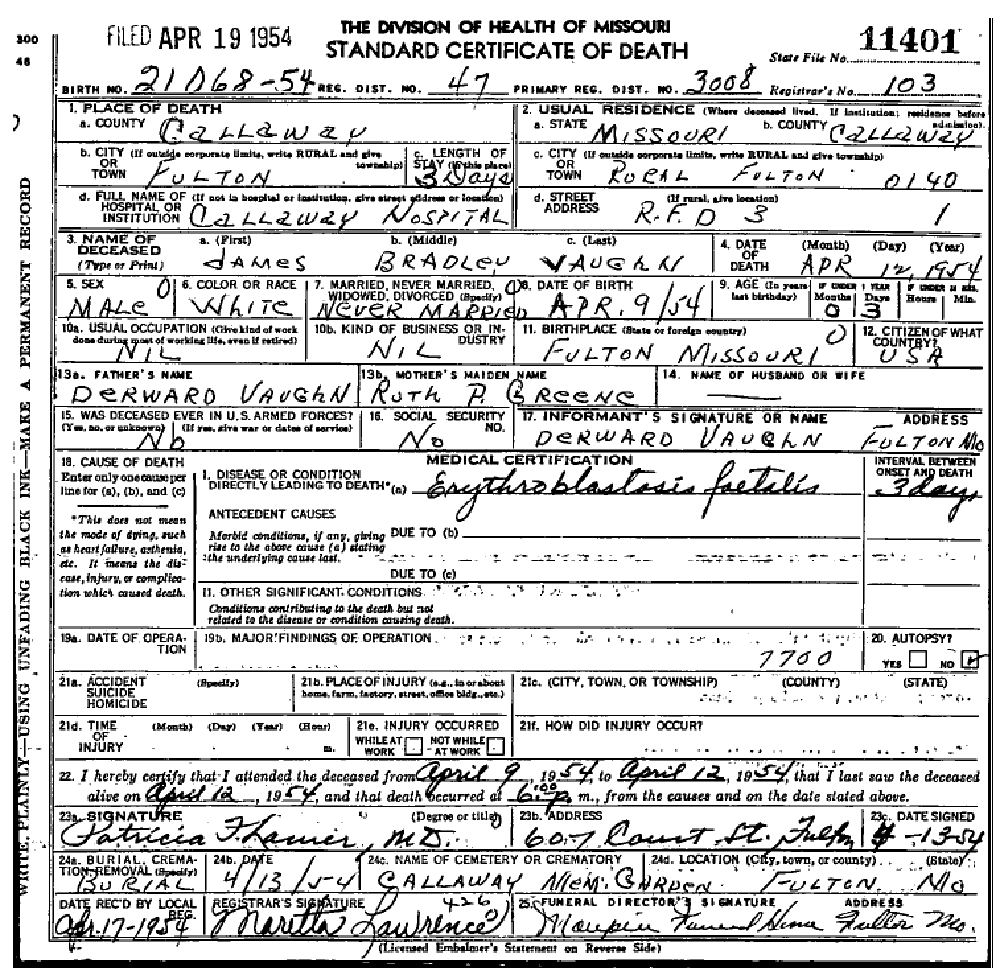 300
48
FILED APR 19 1954
THE DIVISION OF HEALTH OF MISSOURI
STANDARD CERTIFICATE OF DEATH
State File No. 11401
BIRTH NO. 21068-54 REG. DIST. NO. 47 PRIMARY REG. DIST. NO. 3008 Registrar's No. 103
1. PLACE OF DEATH
a. COUNTY Callaway
2. USUAL RESIDENCE (Where deceased lived. If institution: residence before admission).
a. STATE Missouri b. COUNTY Callaway
b. CITY (If outside corporate limits, write RURAL and give township) OR TOWN Fulton
c. LENGTH OF STAY (in this place) 3 Days
c. CITY (If outside corporate limits, write RURAL and give township) OR TOWN Rural Fulton 0140
d. FULL NAME OF (If not in hospital or institution, give street address or location) HOSPITAL OR INSTITUTION Callaway Hospital
d. STREET ADDRESS (If rural, give location) R.F.D 3 1
3. NAME OF DECEASED (Type or Print) a. (First) James b. (Middle) Bradley c. (Last) Vaughn
4. DATE OF DEATH (Month) (Day) (Year) Apr 12, 1954
5. SEX Male 0
6. COLOR OR RACE White
7. MARRIED, NEVER MARRIED, WIDOWED, DIVORCED (Specify) Never Married 0
8. DATE OF BIRTH Apr. 9/54
9. AGE (In years last birthday) IF UNDER 1 YEAR Months 0 Days 3 IF UNDER 24 HRS. Hours Min.
10a. USUAL OCCUPATION (Give kind of work done during most of working life, even if retired) Nil
10b. KIND OF BUSINESS OR INDUSTRY Nil
11. BIRTHPLACE (State or foreign country) Fulton Missouri 0
12. CITIZEN OF WHAT COUNTRY? USA
13a. FATHER'S NAME Derward Vaughn
13b. MOTHER'S MAIDEN NAME Ruth P. Greene
14. NAME OF HUSBAND OR WIFE —
15. WAS DECEASED EVER IN U.S. ARMED FORCES? (Yes, no, or unknown) (If yes, give war or dates of service) No
16. SOCIAL SECURITY NO. No
17. INFORMANT'S SIGNATURE OR NAME ADDRESS Derward Vaughn Fulton Mo
18. CAUSE OF DEATH
Enter only one cause per line for (a), (b), and (c)
*This does not mean the mode of dying, such as heart failure, asthenia, etc. It means the disease, injury, or complication which caused death.
MEDICAL CERTIFICATION
INTERVAL BETWEEN ONSET AND DEATH
I. DISEASE OR CONDITION DIRECTLY LEADING TO DEATH* (a) Erythroblastosis foetalis 3 days
ANTECEDENT CAUSES
Morbid conditions, if any, giving rise to the above cause (a) stating the underlying cause last.
DUE TO (b)
DUE TO (c)
II. OTHER SIGNIFICANT CONDITIONS
Conditions contributing to the death but not related to the disease or condition causing death.
19a. DATE OF OPERATION
19b. MAJOR FINDINGS OF OPERATION
7700
20. AUTOPSY?
YES NO
21a. ACCIDENT SUICIDE HOMICIDE (Specify)
21b. PLACE OF INJURY (e.g., in or about home, farm, factory, street, office bldg., etc.)
21c. (CITY, TOWN, OR TOWNSHIP) (COUNTY) (STATE)
21d. TIME OF INJURY (Month) (Day) (Year) (Hour) m.
21e. INJURY OCCURRED WHILE AT WORK NOT WHILE AT WORK
21f. HOW DID INJURY OCCUR?
22. I hereby certify that I attended the deceased from April 9, 1954, to April 12, 1954, that I last saw the deceased
alive on April 12, 1954, and that death occurred at 6:00 p. m., from the causes and on the date stated above.
23a. SIGNATURE (Degree or title) Patricia F. M.D. 0
23b. ADDRESS 607 Court St. Fulton
23c. DATE SIGNED 4-13-54
24a. BURIAL, CREMATION, REMOVAL (Specify) Burial
24b. DATE 4/13/54
24c. NAME OF CEMETERY OR CREMATORY Callaway Mem. Garden
24d. LOCATION (City, town, or county) (State) Fulton. Mo
DATE REC'D BY LOCAL REG. Apr. 17-1954
REGISTRAR'S SIGNATURE Maretta Lawrence 426
25. FUNERAL DIRECTOR'S SIGNATURE ADDRESS Maupin Funeral Home Fulton Mo.
(Licensed Embalmer's Statement on Reverse Side)
WRITE PLAINLY—USING UNFADING BLACK INK—MAKE A PERMANENT RECORD